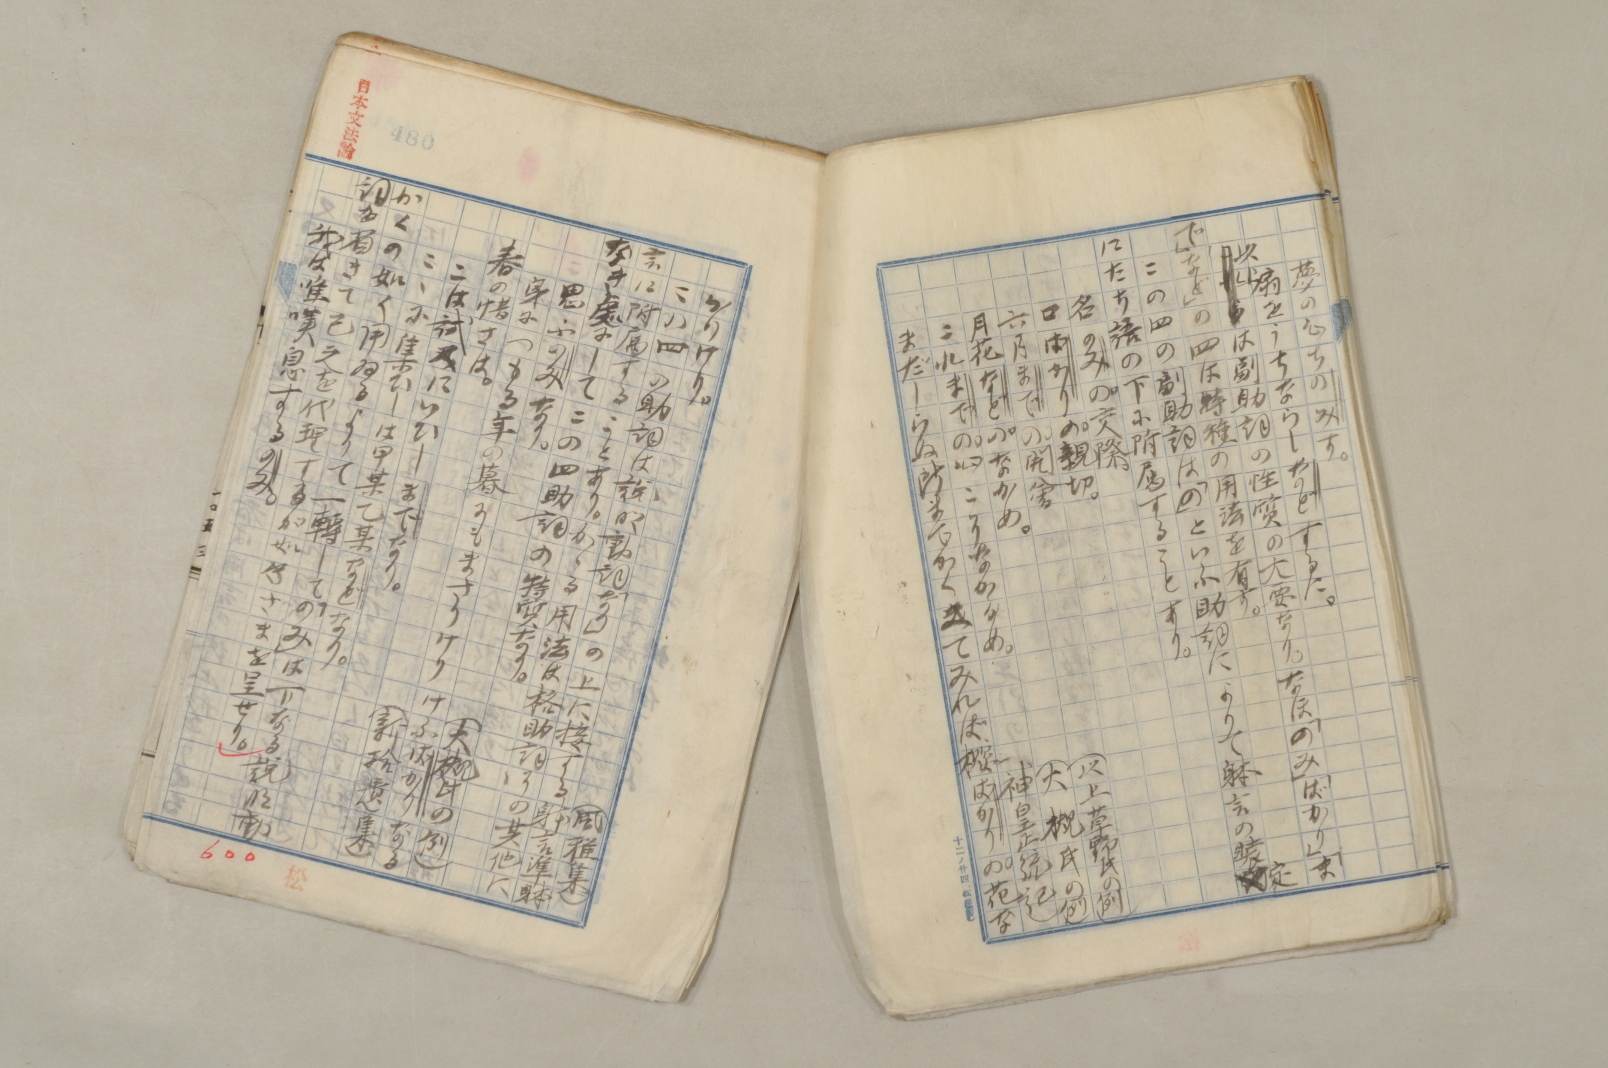 夢の心ちのみす。
扇をうちならしなどするに。
此らは副助詞の性質の大要なり。なほ「のみ」「ばかり」「ま
で」「など」の四は特種の用法を有す。
この四の副助詞は「の」といふ助詞によりて躰言の装定
にたち語の下に附属することあり。
名のみの交際
口ばかりの親切。
六月までの開會 (以上草野氏の例)
月花などのながめ。 (大槻氏の例)
これまでの心こりなかなめ。 (神皇正統記)
まだしらぬ所までかく来てみれば、桜ばかりの花な
かりけり。 (風雅集)
この四の助詞は説明動詞「なり」の上に接する時躰言準躰
言に附属することあり。かゝる用法は格助詞の其他に
なき處にしてこの四助詞の特質なり。
思ふのみなり。
身につもる年の暮にもまさりけりけふばかりなる
春の惜さは。 (新拾遺集)
こは試みにいひしまでなり。 (大槻氏の例)
こゝに集ひしは甲某乙某などなり。
かくの如く用ゐるよりて一轉して「のみ」は下なる説明動
詞を省きて己之を代理するが如きさまを呈せり。
我は唯嘆息するのみ。
日本文法論
480
一〇五三
600
松